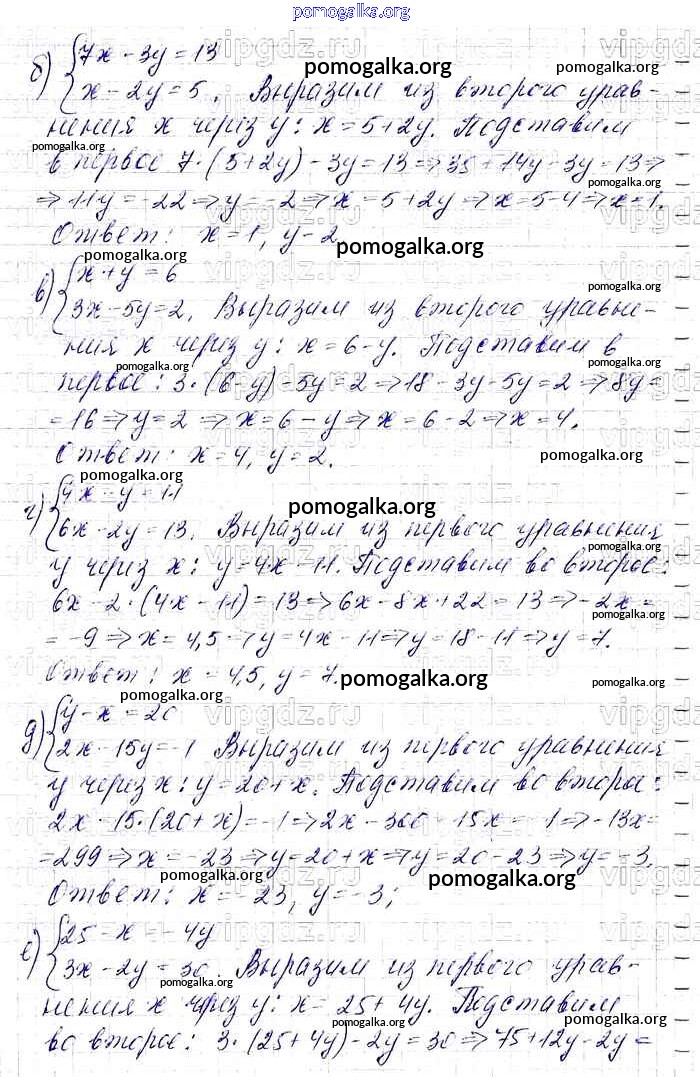 pomogalka.org
б) {7x - 3y = 13
{x - 2y = 5. Выразим из второго урав-
нения x через y: x = 5+2y. Подставим
в первое 7·(5+2y) - 3y = 13 ⇒ 35 + 14y - 3y = 13 ⇒
⇒ 11y = -22 ⇒ y = -2 ⇒ x = 5 + 2y ⇒ x = 5 - 4 ⇒ x = 1.
Ответ: x = 1, y - 2
в) {x + y = 6
{3x - 5y = 2. Выразим из второго уравне-
ния x через y: x = 6 - y. Подставим в
первое: 3·(6 - y) - 5y = 2 ⇒ 18 - 3y - 5y = 2 ⇒ 8y =
= 16 ⇒ y = 2 ⇒ x = 6 - y ⇒ x = 6 - 2 ⇒ x = 4.
Ответ: x = 4, y = 2.
г) {4x - y = 11
{6x - 2y = 13. Выразим из первого уравнения
y через x: y = 4x - 11. Подставим во второе:
6x - 2·(4x - 11) = 13 ⇒ 6x - 8x + 22 = 13 ⇒ -2x =
= -9 ⇒ x = 4,5 ⇒ y = 4x - 11 ⇒ y = 18 - 11 ⇒ y = 7.
Ответ: x = 4,5, y = 7.
д) {y - x = 20
{2x - 15y = -1 Выразим из первого уравнения
y через x: y = 20 + x. Подставим во второе:
2x - 15·(20 + x) = -1 ⇒ 2x - 300 - 15x = -1 ⇒ -13x =
= 299 ⇒ x = -23 ⇒ y = 20 + x ⇒ y = 20 - 23 ⇒ y = -3.
Ответ: x = -23, y = -3;
е) {25 - x = -4y
{3x - 2y = 30. Выразим из первого урав-
нения x через y: x = 25 + 4y. Подставим
во второе: 3·(25 + 4y) - 2y = 30 ⇒ 75 + 12y - 2y =